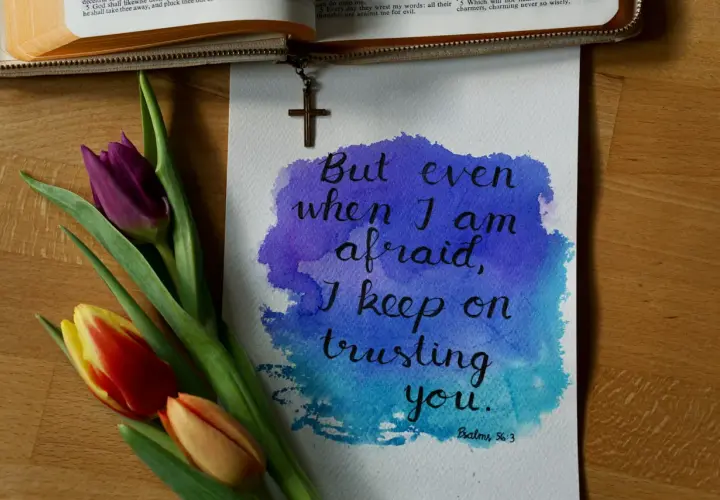 5 God shall likewise
he shall take thee away, and pluck thee out of
5 Every day they wrest my words: all their
against me for evil.
5 Which will not
charmers, charming never so wisely.
But even
when I am
afraid,
I keep on
trusting
you.
Psalms 56:3